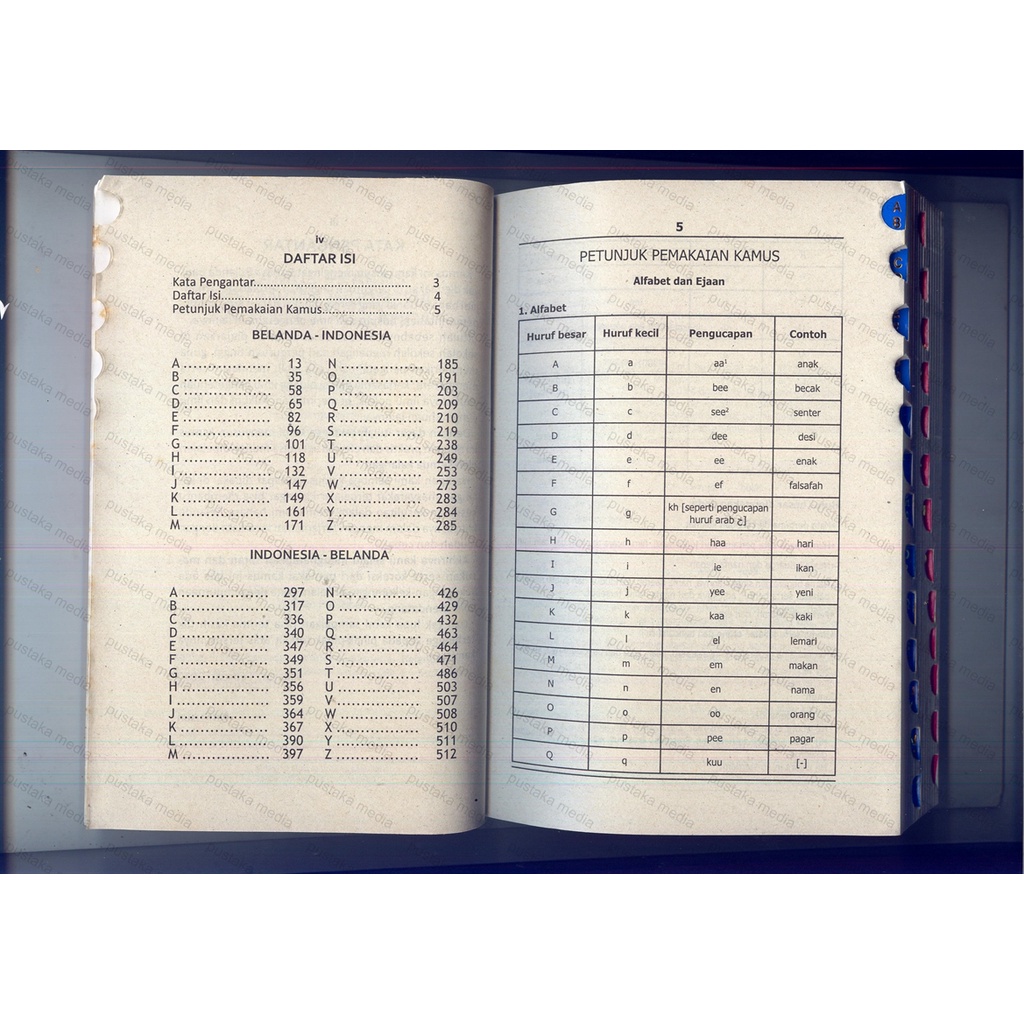 iv
DAFTAR ISI
Kata Pengantar.................................................. 3
Daftar Isi.................................................. 4
Petunjuk Pemakaian Kamus........................ 5
BELANDA - INDONESIA
A ...................... 13 N ...................... 185
B ...................... 35 O ...................... 191
C ...................... 58 P ...................... 203
D ...................... 65 Q ...................... 209
E ...................... 82 R ...................... 210
F ...................... 96 S ...................... 219
G ...................... 101 T ...................... 238
H ...................... 118 U ...................... 249
I ...................... 132 V ...................... 253
J ...................... 147 W ...................... 273
K ...................... 149 X ...................... 283
L ...................... 161 Y ...................... 284
M ...................... 171 Z ...................... 285
INDONESIA - BELANDA
A ...................... 297 N ...................... 426
B ...................... 317 O ...................... 429
C ...................... 336 P ...................... 432
D ...................... 340 Q ...................... 463
E ...................... 347 R ...................... 464
F ...................... 349 S ...................... 471
G ...................... 351 T ...................... 486
H ...................... 356 U ...................... 503
I ...................... 359 V ...................... 507
J ...................... 364 W ...................... 508
K ...................... 367 X ...................... 510
L ...................... 390 Y ...................... 511
M ...................... 397 Z ...................... 512
5
PETUNJUK PEMAKAIAN KAMUS
Alfabet dan Ejaan
1. Alfabet
Huruf besar Huruf kecil Pengucapan Contoh
A a aa¹ anak
B b bee becak
C c see² senter
D d dee desi
E e ee enak
F f ef falsafah
G g kh [seperti pengucapan
huruf arab خ]
H h haa hari
I i ie ikan
J j yee yeni
K k kaa kaki
L l el lemari
M m em makan
N n en nama
O o oo orang
P p pee pagar
Q q kuu [-]
A
B
C
pustaka media